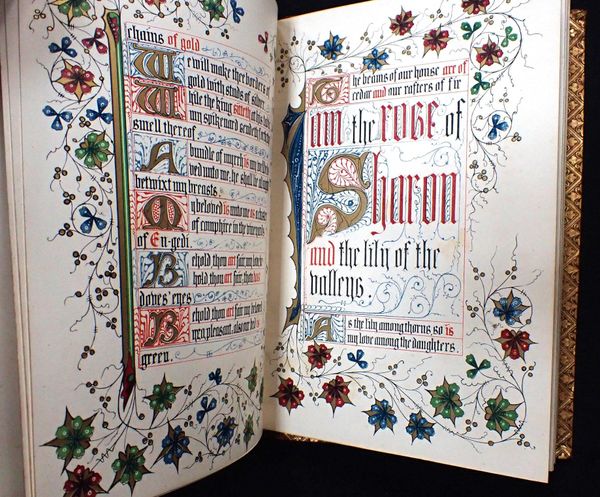 chains of gold
We will make thee borders of
gold with studs of silver.
While the king sitteth at his
my spikenard sendeth forth
smell thereof
A bundle of myrrh is my
ved unto me, he shall lie
betwixt my breasts
My beloved is unto me as a cluster
of camphire in the vineyards
of En-gedi.
Behold thou art fair my love be
hold thou art fair, thou hast
doves' eyes
Behold thou art fair, my beloved
yea pleasant, also our bed is
green.
The beams of our house are of
cedar and our rafters of fir
I am the ROSE of
Sharon
and the lily of the
valleys.
As the lily among thorns so is
my love among the daughters.